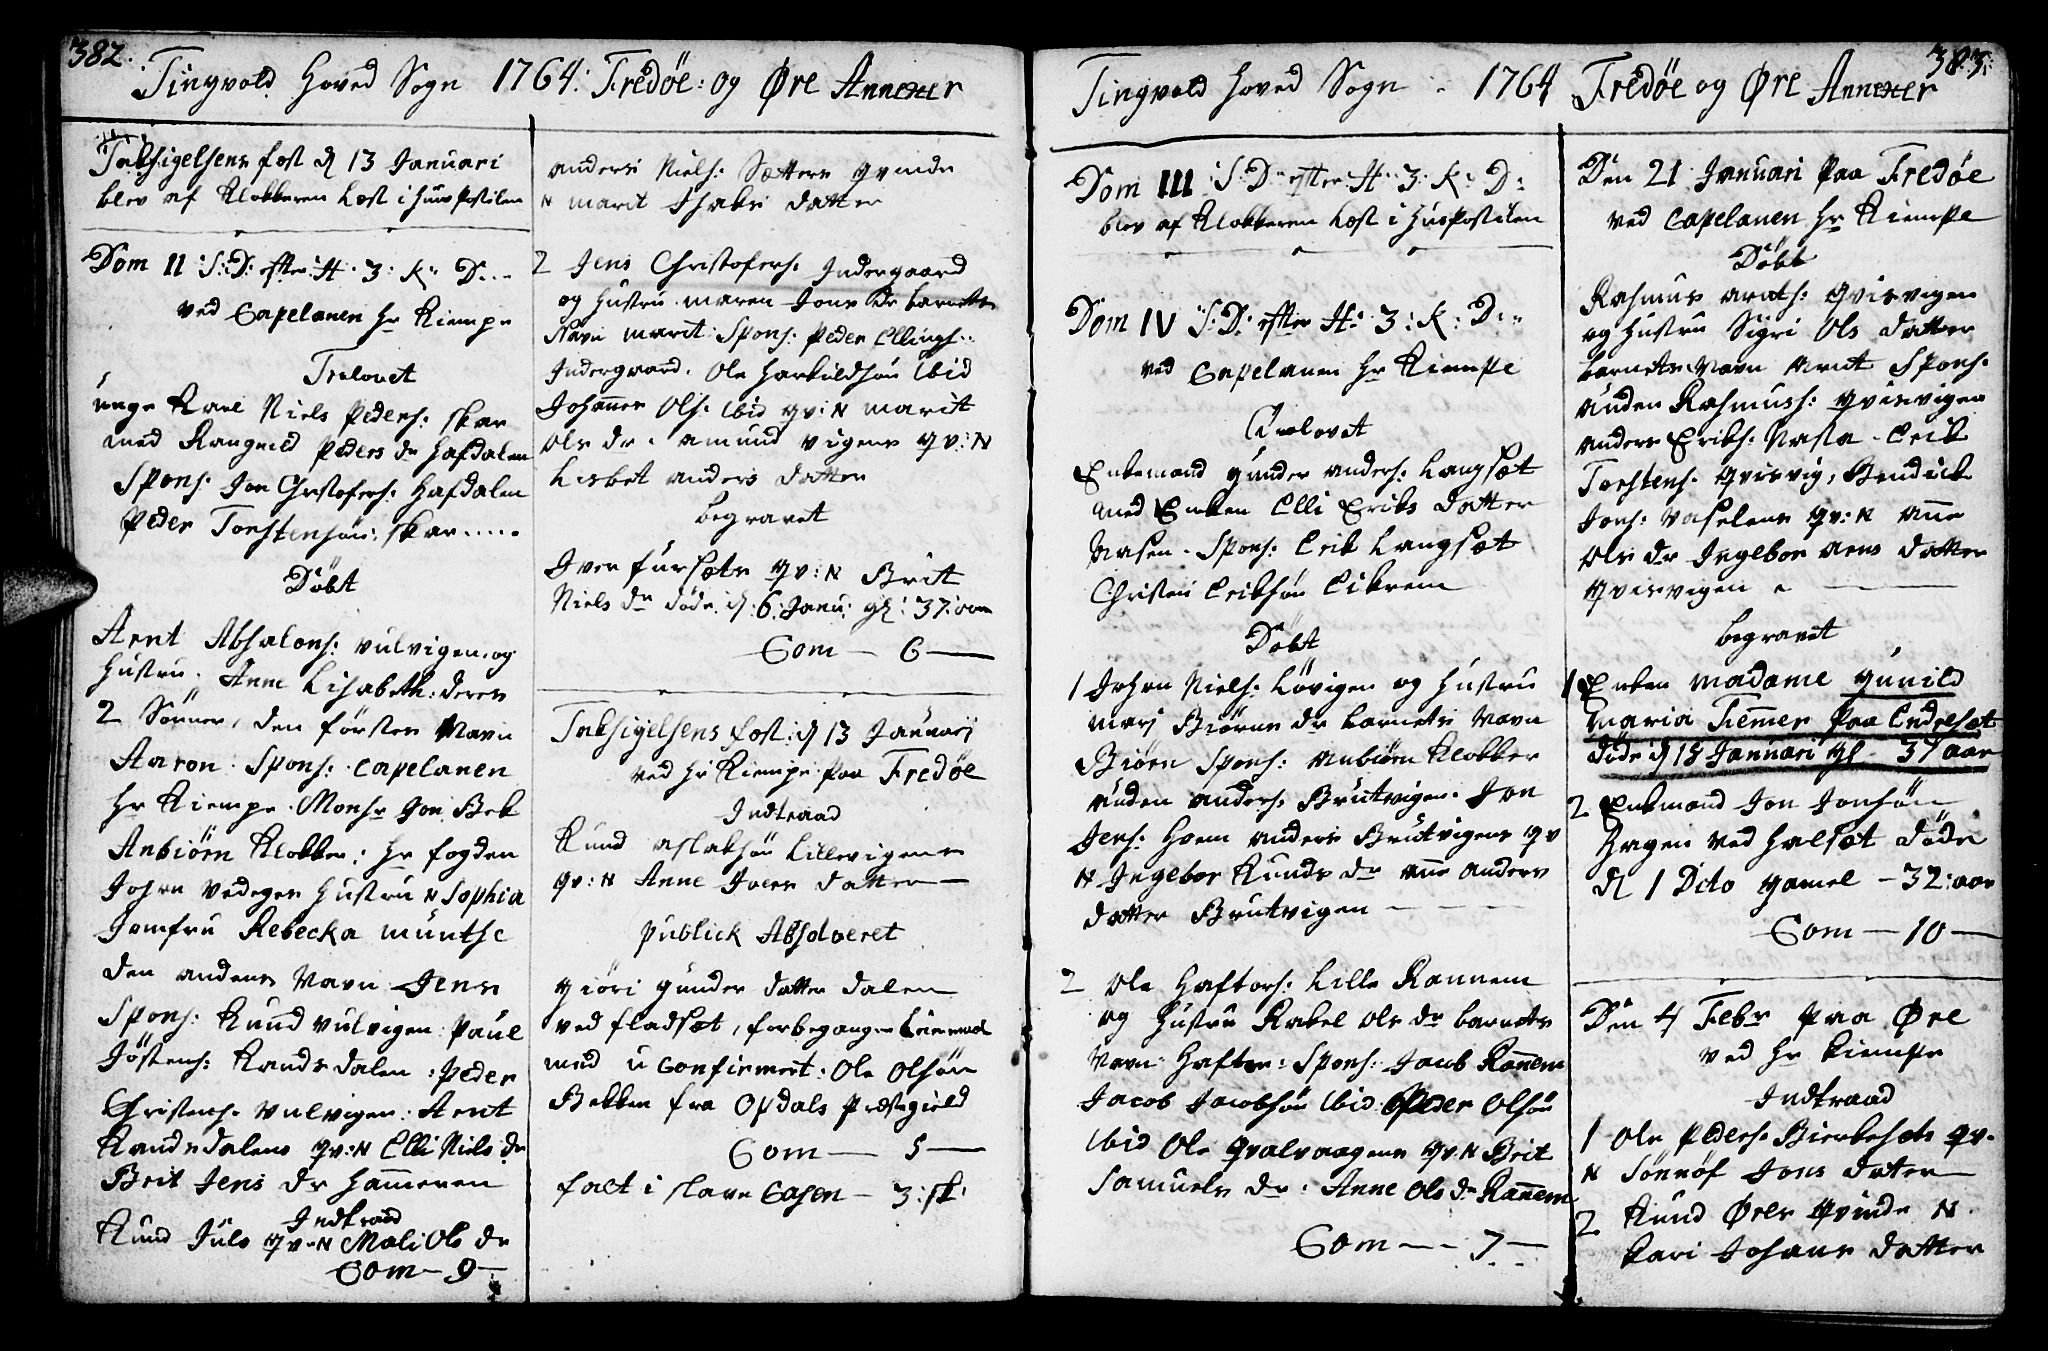 382.
Tingvold Hoved Sogn 1764: Fredøe: og Øre Annexer
Taksigelsens fest d 13 Januari
blev af Klokkeren Lest i Huus Postilen
Dom II: S: D: efter H: 3: K: D:
ved Capelanen Hr Kiempe
Trolovet
unge Karl Niels Peders: Skar
med Rangnild Peders dr Hafdalen
Spons: Jon Christofers: Hafdalen
Peder Torstensøn: Skar
Døbt
Arnt Absalons: Vulvigen og
Hustru Anne Lisabeth: deres
2 Sønner, den førstes Navn
Aaron Spons: Capelanen
Hr Kiempe Monsr Jon Bek
Anbiørn Klokker: Hr fogden
John Vedeges Hustru N Sophia
Jomfru Rebecka Munthe
den andens Navn Jens
Spons: Knud Vulvigen Paul
Jøstens: Rands dalen: Peder
Christens: Vulvigen: Arnt
Randsdalens qv: N Elli Niels dr
Brit Jens dr Hammeren
Indtraad
Knud Juls qv: N Mali Ols dr
Com — 9 —
anders Niels: Sætters qvinde
N marit Isaks datter
2 Jens Christofers: Indergaard
og Hustru maren Jons dr barnets
Navn marit Spons: Peder Ellings:
Indergaard. Ole Harkuldsøn ibid
Johannes Ols: ibid qv: N marit
Ols dr: amund vigens qv: N
Lisbet anders datter
begravet
Iver fursets qv: N Brit
Niels dr døde d: 6: Janu: gl: 37: aar
Com — 6 —
Taksigelsens fest: d 13 Januarj
ved Hr Kiempe paa Fredøe
Indtraad
Knud aslaksøn Lillevigens
qv: N Anne Ivers datter —
publick Absolveret
Giøri gunder datter dalen
ved fladset, forbegangen Leiermaal
med u Confirmert: Ole Olsøn
Bekken fra Opdals Prestegield
Com — 5 —
fact i slave Casen — 3: sk:
383:
Tingvold Hoved Sogn - 1764 Fredøe og Øre Annexer
Dom III: S: D: efter H: 3: K: D:
blev af Klokkeren Lest i Huspostilen
Dom IV S: D: efter H: 3: K: D:
ved Capelanen Hr Kiempe
Trolovet
Enkemand gunder anders: Langset
med Enken Elli Eriks datter
Nasen. Spons: Erik Langset
Christen Eriksøn Eikrem
Døbt
1 John Niels: Løvigen og Hustru
marj Biørns dr barnets Navn
Biørn Spons: Anbiørn Klokker
anden anders: Brutvigen. Jon
Jens: Hoem anders Brutvigens qv
N Ingebor Knuds dr ane anders
datter Brutvigen
2 Ole Haftors: Lille Rannem
og Hustru Rakel Ols dr barnets
Navn Haftor: Spons: Jacob Ranem
Jacob Jacobsøn ibid Peder Olsøn
ibid Ole qvalvaagens qv: N Brit
Samuels dr: Anne Ols dr Ranem
Com — 7 —
Den 21 Januari paa Fredøe
ved Capelanen Hr Kiempe
Døbt
Rasmus arnts: qvisvigen
og Hustru Sigri Ols datter
barnets Navn Arnt Spons:
anden Rasmuss: qvisvigen
anders Eriks: Nasta Erik
Torstens: qvisvig, Bendick
Jons: Naselens qv: N ane
Ols dr Ingebor aens datter
qvisvigen
begravet
1 Enken Madame gunild
maria Tiemer paa Endreset
døde d 13 Januari gl — 37 aar
2 Enkmand Jon Jonsøn
Hagen ved Halset døde
d 1 Dito gamel — 32: aar
Com — 10 —
Den 4 Febr paa Øre
ved Hr Kiempe
Indtraad
1 Ole Peders: Bierkesets qv.
N Sønnøf Jons dater
2 Knud Øres qvinde N.
Kari Johans datter